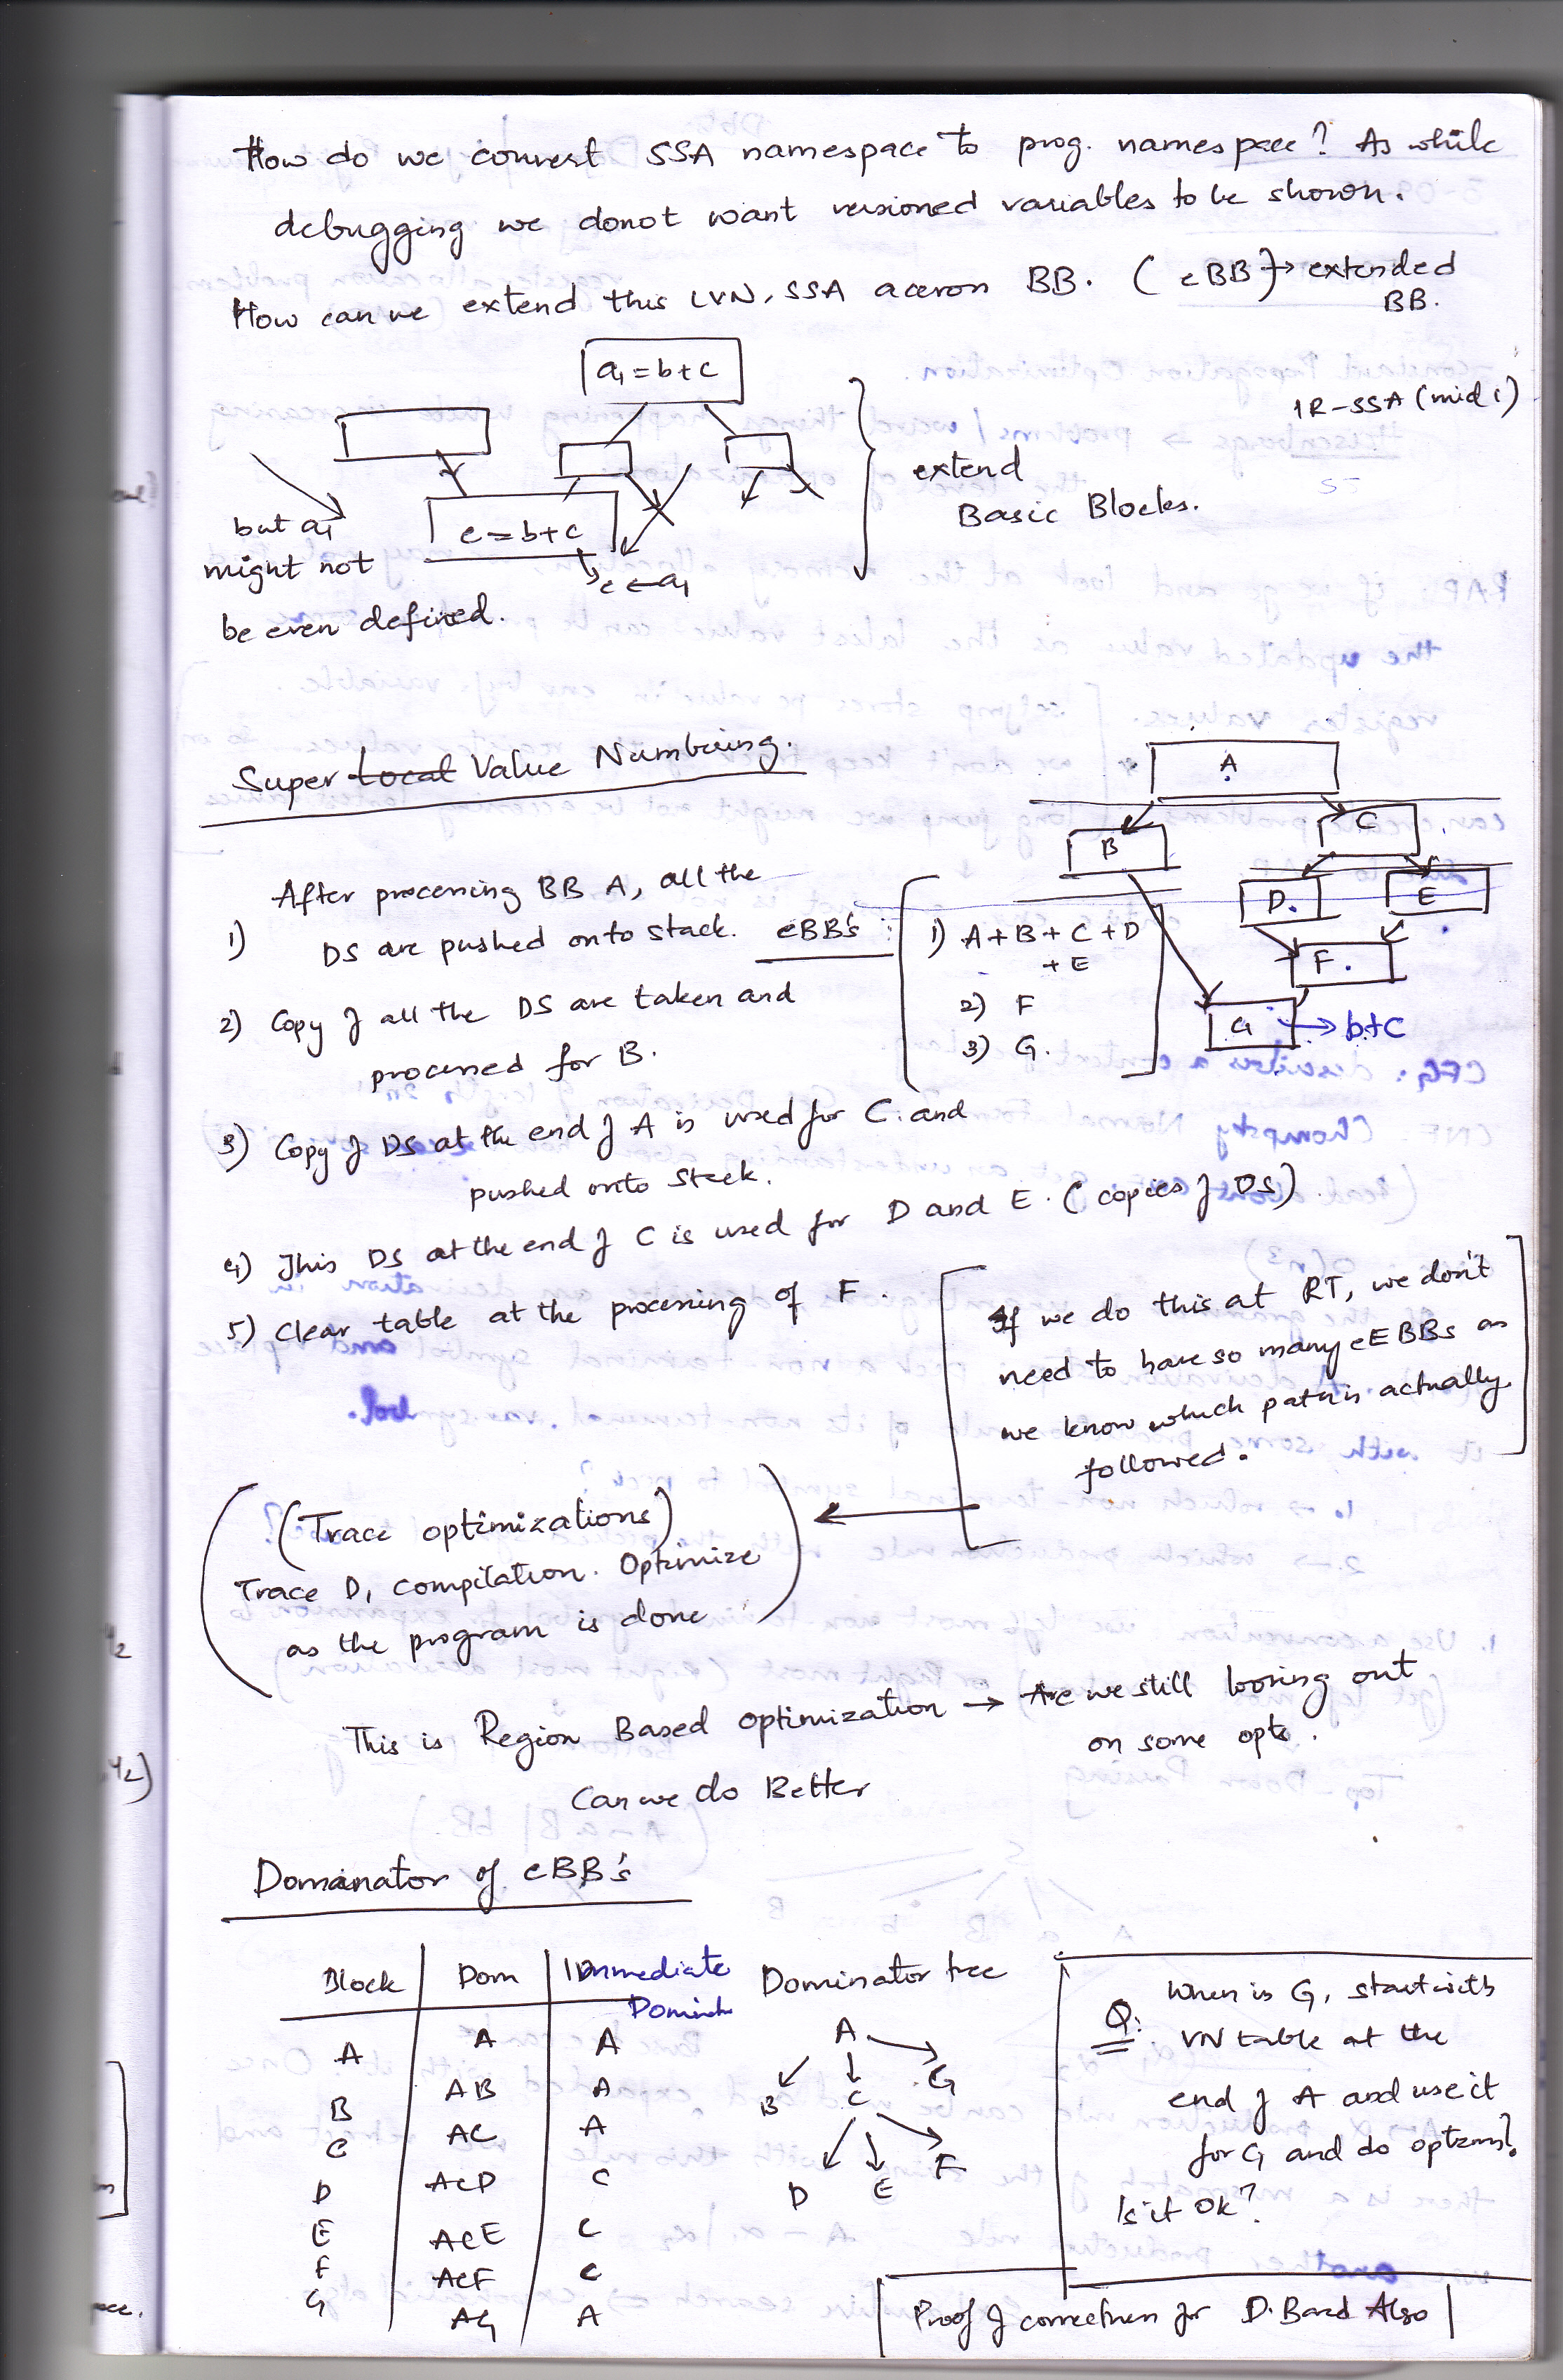 How do we convert SSA namespace to prog. namespace? As while
debugging we donot want versioned variables to be shown.
How can we extend this LVN, SSA across BB. (eBB) → extended
BB.
a1 = b+c
IR-SSA (mid i)
extend
Basic Blocks.
but a1
might not
be even defined.
e = b+c
e ← a1
Super Local Value Numbering.
A
B
C
D
E
F
G → b+c
1) After processing BB A, all the
DS are pushed onto stack.
eBB's :
1) A+B+C+D
+E
2) F
3) G.
2) Copy of all the DS are taken and
processed for B.
3) Copy of DS at the end of A is used for C. and
pushed onto Stack.
4) This DS at the end of C is used for D and E. (copies of DS).
5) Clear table at the processing of F.
If we do this at RT, we don't
need to have so many eEBBs as
we know which path is actually
followed.
(Trace optimizations)
Trace D, compilation. Optimize
as the program is done
This is Region Based optimization → Are we still loosing out
on some opts.
Can we do Better
Dominator of eBB's
Block Dom Immediate
Domin
A A A
B AB A
C AC A
D ACD C
E ACE C
F ACF C
G AG A
Dominator tree
A
B C G
D E F
Q: When is G, start with
VN table at the
end of A and use it
for G and do optzms?
Is it OK?
Proof of correctness for D. Band Also